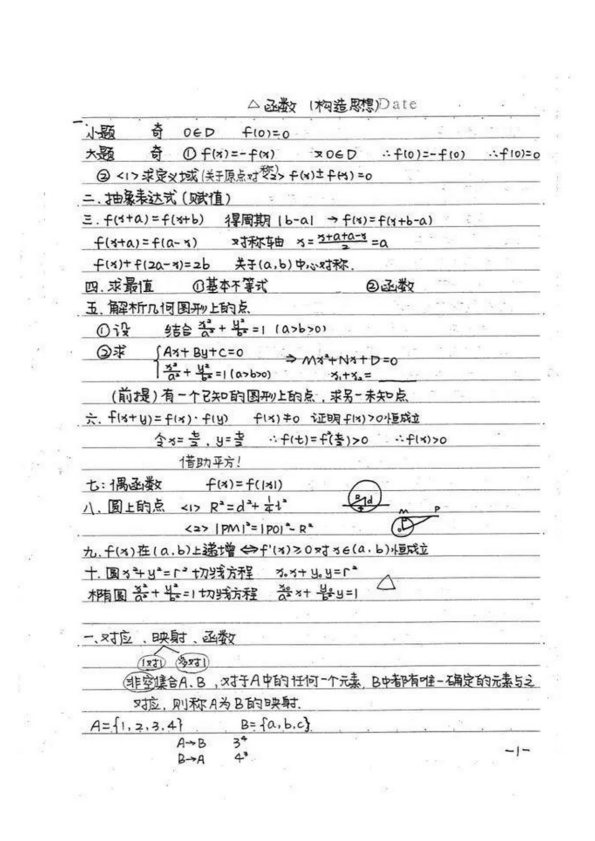 △函数 (构造思想)Date
一.
小题 奇 0∈D f(0)=0
大题 奇 ① f(x)=-f(x) 又0∈D ∴f(0)=-f(0) ∴f(0)=0
② <1>求定义域(关于原点对称) <2> f(x)±f(-x)=0
二.抽象表达式(赋值)
三.f(x+a)=f(x+b) 得周期 |b-a| → f(x)=f(x+b-a)
f(x+a)=f(a-x) 对称轴 x=\frac{x+a+a-x}{2}=a
f(x)+f(2a-x)=2b 关于(a,b)中心对称.
四.求最值 ①基本不等式 ②函数
五.解析几何图形上的点
①设 结合 \frac{x²}{a²}+\frac{y²}{b²}=1 (a>b>0)
②求 {Ax+By+C=0 ⇒ Mx²+Nx+D=0
\frac{x²}{a²}+\frac{y²}{b²}=1(a>b>0) x₁+x₂=
(前提)有一个已知的图形上的点,求另一未知点
六.f(x+y)=f(x)·f(y) f(x)≠0 证明f(x)>0恒成立
令x=\frac{t}{2},y=\frac{t}{2} ∴f(t)=f²(\frac{t}{2})>0 ∴f(x)>0
借助平方!
七:偶函数 f(x)=f(|x|)
八.圆上的点 <1> R²=d²+\frac{1}{4}l² R d
<2> |PM|²=|PO|²-R² M P
九.f(x)在(a.b)上递增⇔f'(x)≥0对x∈(a.b)恒成立
十.圆x²+y²=r²切线方程 x₀x+y₀y=r²
椭圆\frac{x²}{a²}+\frac{y²}{b²}=1切线方程 \frac{x₀}{a²}x+\frac{y₀}{b²}y=1 △
一.对应、映射、函数
1对1 多对1
非空集合A.B,对于A中的任何一个元素,B中都有唯一确定的元素与之
对应,则称A为B的映射.
A={1,2,3,4} B={a,b,c}
A→B 3⁴
B→A 4³
-1-